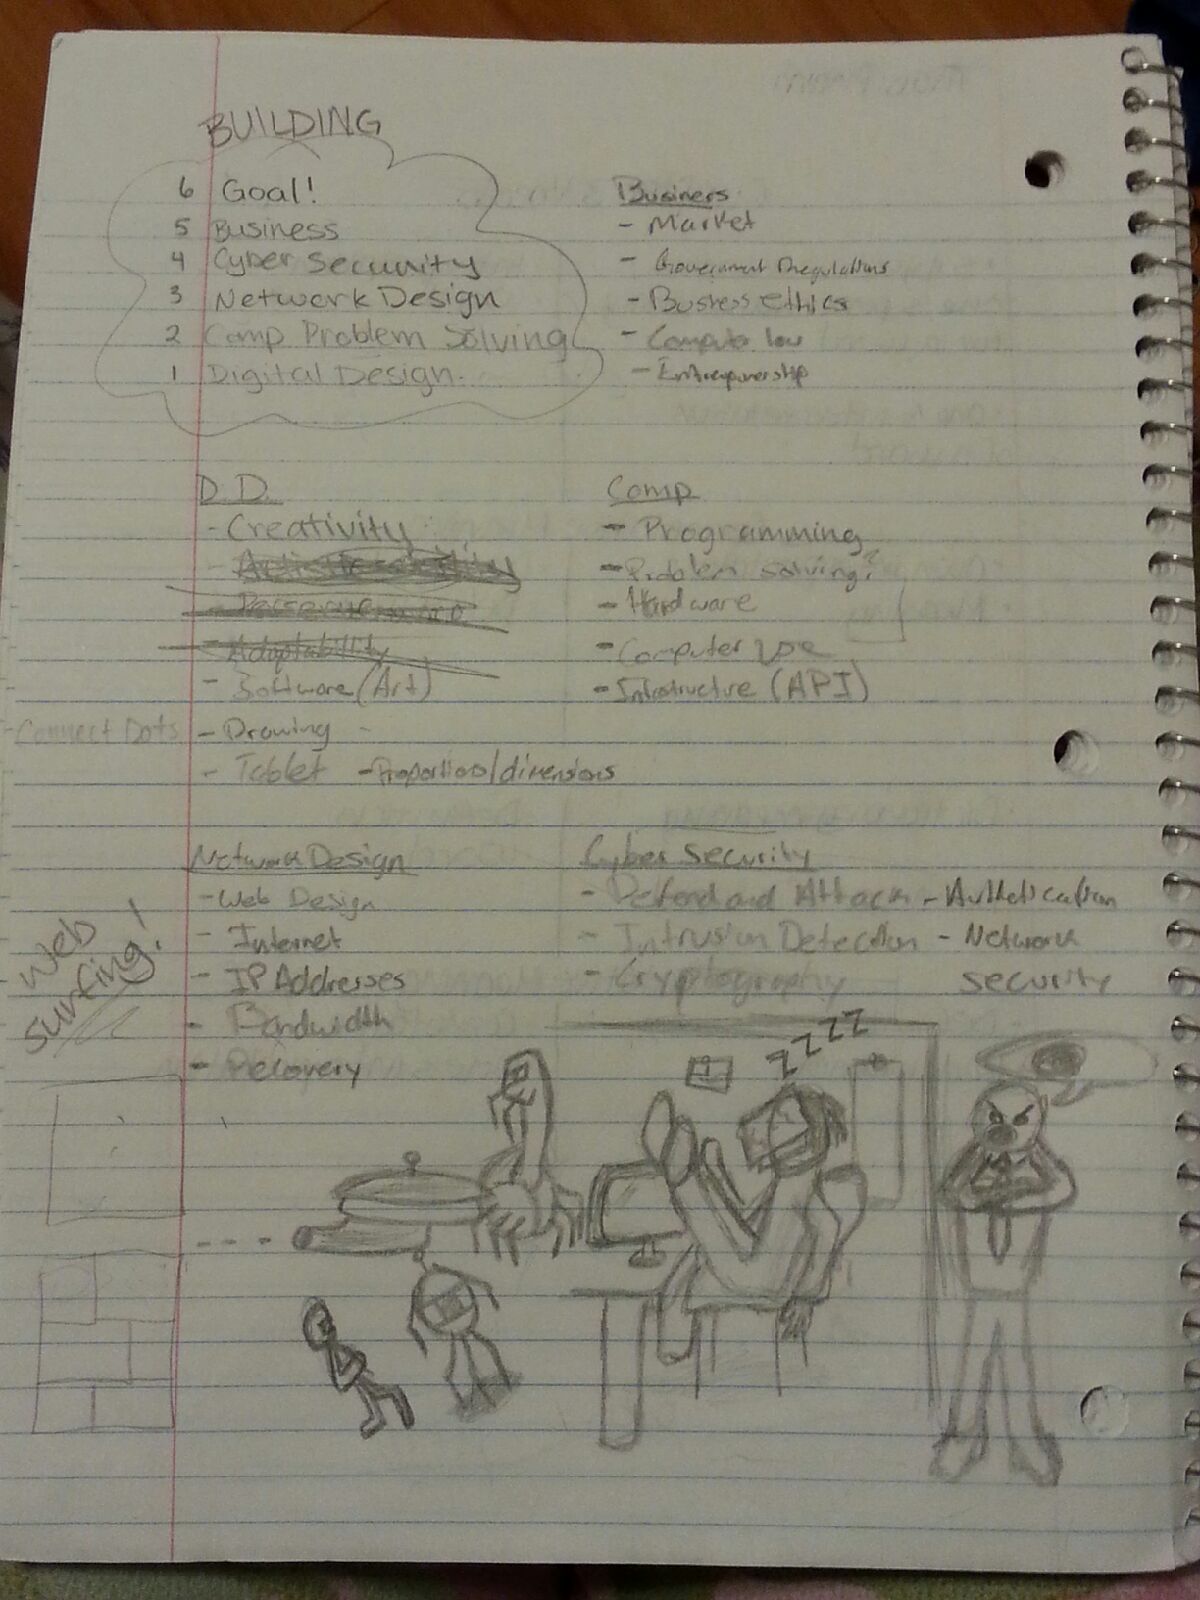 BUILDING
6 Goal!
5 Business
4 Cyber Security
3 Network Design
2 Comp Problem Solving
1 Digital Design.
Business
- Market
- Government Regulations
- Business ethics
- Computer law
- Entrepunership
D.D.
- Creativity
- Adaptability
- Software (Art)
- Connect Dots - Drawing
- Tablet - Proportions/dimensions
Comp
- Programming
- Problem solving?
- Hardware
- Computer use
- Infrastructure (API)
Network Design
- Web Design
- Internet
- IP Addresses
- Bandwidth
- Recovery
Web
surfing!
Cyber Security
- Defend and Attack - Authetication
- Intrusion Detection - Network
- Cryptography security
ZZZZ